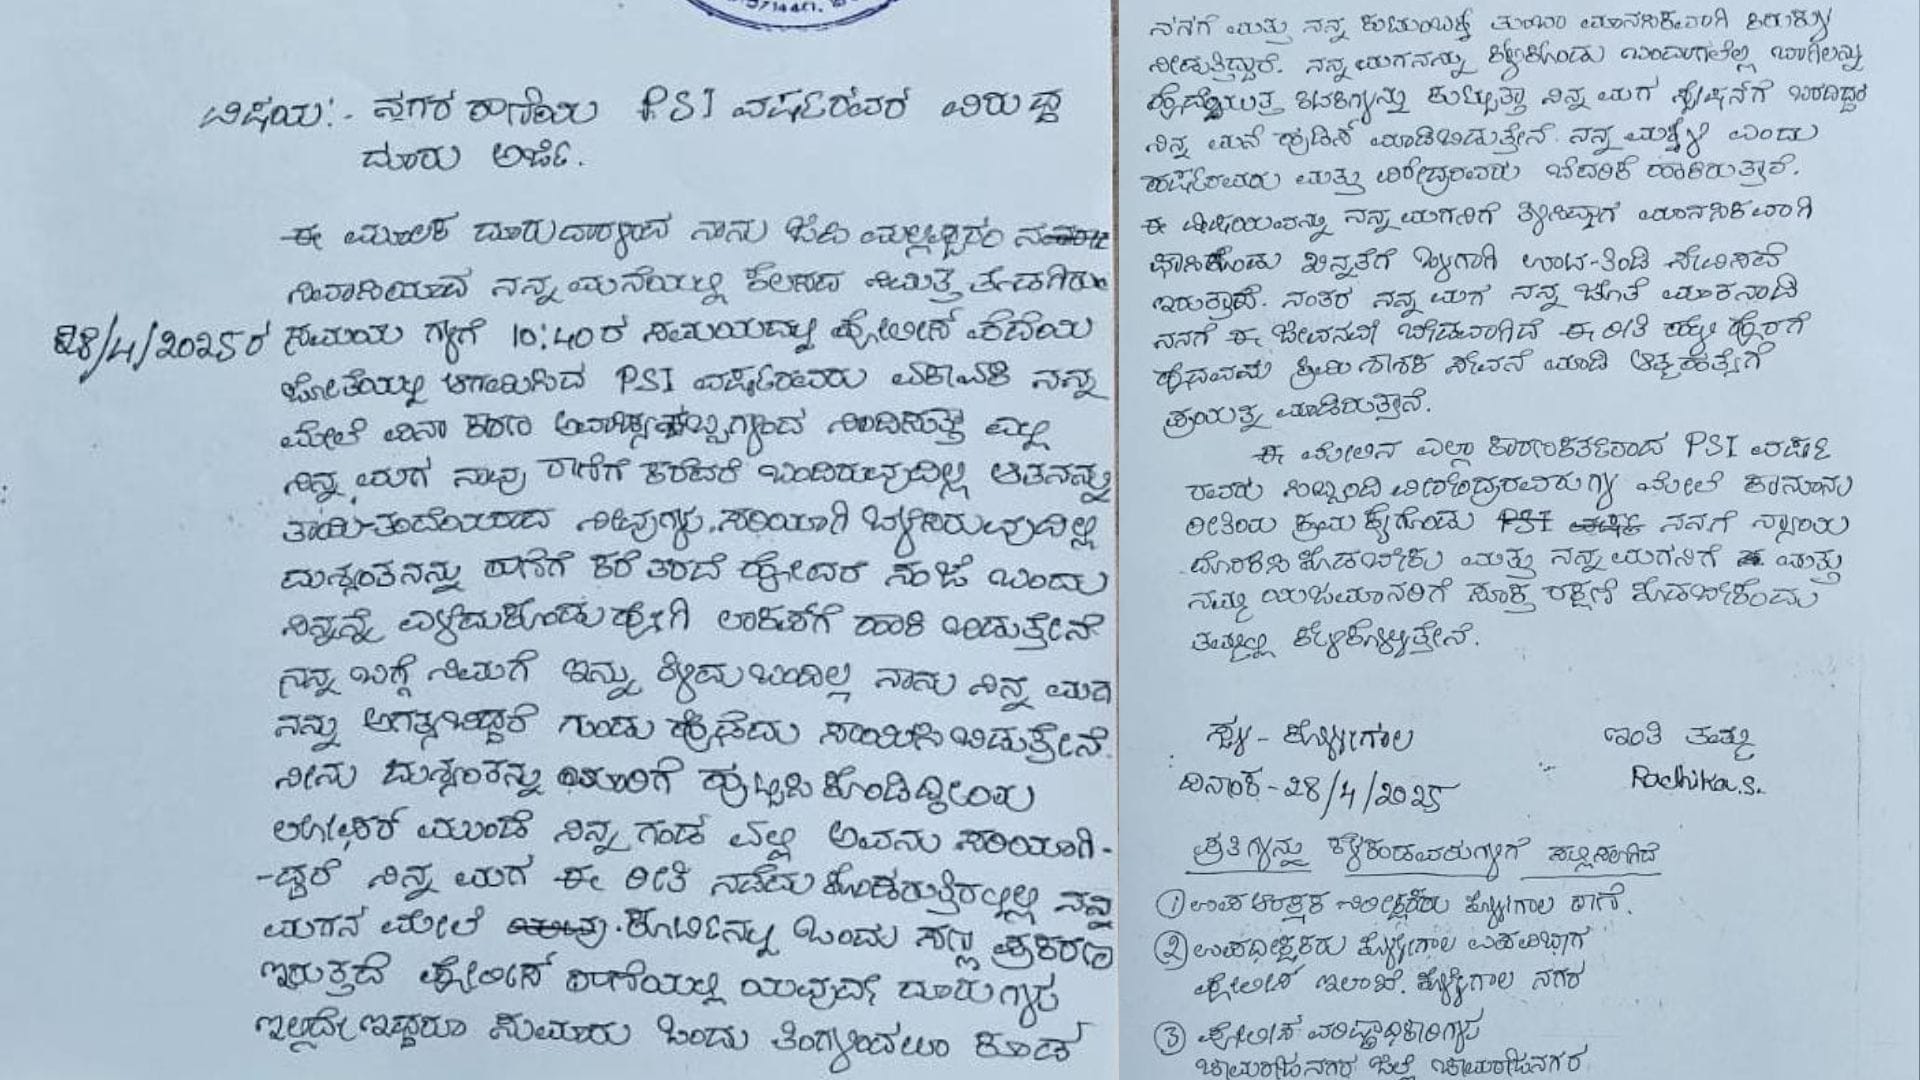 ವಿಷಯ:- ನಗರ ಠಾಣೆಯ PSI ವರ್ಷರವರ ವಿರುದ್ಧ
ದೂರು ಅರ್ಜಿ.
ಈ ಮೂಲಕ ದೂರುದಾರಳಾದ ನಾನು
ನಿವಾಸಿಯಾದ ನನ್ನ ಮನೆಯಲ್ಲಿ ಕೆಲಸದ ನಿಮಿತ್ತ
28/4/2025ರ ಸಮಯ 10:40ರ ಸಮಯದಲ್ಲಿ ಪೋಲೀಸ್
ಜೋತೆಯಲ್ಲಿ ಆಗಮಿಸಿದ PSI ವರ್ಷರವರು ಏಕಾಏಕಿ ನನ್ನ
ಮೇಲೆ ವಿನಾ ಕಾರಣ ಅವಾಚ್ಯ ನಿಂದಿಸುತ್ತಾ ಎಲ್ಲಿ
ನಿನ್ನ ಮಗ ನಾವು ಠಾಣೆಗೆ ಕರೆದರೆ ಬಂದಿರುವುದಿಲ್ಲ ಆತನನ್ನು
ತಾಯಿ-ತಂದೆಯಾದ ನೀವುಗಳು ಸರಿಯಾಗಿ ಬೆಳೆಸಿರುವುದಿಲ್ಲ
ದುಶ್ಯಂತನನ್ನು ಠಾಣೆಗೆ ಕರೆ ತರದೆ ಹೋದರೆ ಸಂಜೆ ಬಂದು
ನಿನ್ನನ್ನೆ ಎಳೆದುಕೊಂಡು ಹೋಗಿ ಲಾಕಪ್‌ಗೆ ಹಾಕಿ ಬಿಡುತ್ತೇನೆ
ನನ್ನ ಬಗ್ಗೆ ನಿಮಗೆ ಇನ್ನು ನಾನು ನಿನ್ನ ಮಗ
ನನ್ನು ಅಗತ್ಯಬಿದ್ದರೆ ಗುಂಡು ಹೊಡೆದು ಸಾಯಿಸಿ ಬಿಡುತ್ತೇನೆ.
ನೀನು ದುಶ್ಯಂತನ್ನು ಯಾರಿಗೆ ಹುಟ್ಟಿಸಿ ಕೊಂಡಿದ್ದೀಯ
ಲೋಫರ್ ಮುಂಡೆ ನಿನ್ನ ಗಂಡ ಎಲ್ಲಿ ಅವನು ಸರಿಯಾಗಿ-
-ದ್ದರೆ ನಿನ್ನ ಮಗ ಈ ರೀತಿ ನಡೆದು ಕೊಳ್ಳುತ್ತಿರಲಿಲ್ಲ ನನ್ನ
ಮಗನ ಮೇಲೆ ಕೋರ್ಟಿನಲ್ಲಿ ಒಂದು ಸಣ್ಣ ಪ್ರಕರಣ
ಇರುತ್ತದೆ ಪೋಲೀಸ್ ಠಾಣೆಯಲ್ಲಿ ಯಾವುದೇ ದೂರುಗಳು
ಇಲ್ಲದೇ ಇದ್ದರೂ ಸುಮಾರು ಒಂದು ತಿಂಗಳಿಂದಲೂ ಕೂಡ
ನನಗೆ ಮತ್ತು ನನ್ನ ಕುಟುಂಬಕ್ಕೆ ತುಂಬಾ ಮಾನಸಿಕವಾಗಿ ಕಿರುಕುಳ
ನೀಡುತ್ತಿದ್ದಾರೆ. ನನ್ನ ಮಗನನ್ನು ಕೇಳಿಕೊಂಡು ಬಂದಾಗಲೆಲ್ಲ ಬಾಗಿಲನ್ನು
ಹೊಡೆಯುತ್ತ ಕಿಟಕಿಗಳನ್ನು ಕುಟ್ಟುತ್ತಾ ನಿನ್ನ ಮಗ ಸ್ಟೇಷನ್‌ಗೆ ಬರದಿದ್ದರೆ
ನಿನ್ನ ಮನೆ ಪುಡಿಸ್ ಮಾಡಿಬಿಡುತ್ತೇನೆ. ನನ್ನ ಮಕ್ಕಳೆ ಎಂದು
ವರ್ಷರವರು ಮತ್ತು ವಿರೇಂದ್ರರವರು ಬೆದರಿಕೆ ಹಾಕಿರುತ್ತಾರೆ.
ಈ ವಿಷಯವನ್ನು ನನ್ನ ಮಗನಿಗೆ ತಿಳಿಸಿದಾಗ ಮಾನಸಿಕವಾಗಿ
ಖಿನ್ನತೆಗೆ ಊಟ-ತಿಂಡಿ ಸೇವಿಸದೆ
ಇರುತ್ತಾನೆ. ನಂತರ ನನ್ನ ಮಗ ನನ್ನ ಜೊತೆ ಮಾತನಾಡಿ
ನನಗೆ ಈ ಜೀವನವೇ ಬೇಡವಾಗಿದೆ ಈ ರೀತಿ ಹೊರಗೆ
ಕ್ರಿಮಿನಾಶಕ ಸೇವನೆ ಮಾಡಿ ಆತ್ಮಹತ್ಯೆಗೆ
ಪ್ರಯತ್ನ ಮಾಡಿರುತ್ತಾನೆ.
ಈ ಮೇಲಿನ ಎಲ್ಲಾ PSI ವರ್ಷ
ರವರು ಸಿಬ್ಬಂದಿ ವಿರೇಂದ್ರರವರುಗಳ ಮೇಲೆ ಕಾನೂನು
ರೀತಿಯ ಕ್ರಮ ಕೈಗೊಂಡು PSI ನನಗೆ ನ್ಯಾಯ
ದೊರಕಿಸಿ ಕೊಡಬೇಕು ಮತ್ತು ನನ್ನ ಮಗನಿಗೆ ಮತ್ತು
ನಮ್ಮ ಯಜಮಾನರಿಗೆ ಸೂಕ್ತ ರಕ್ಷಣೆ ಕೊಡಬೇಕೆಂದು
ತಮ್ಮಲ್ಲಿ ಕೇಳಿಕೊಳ್ಳುತ್ತೇನೆ.
ಸ್ಥಳ - ಕೊಳ್ಳೇಗಾಲ
ಇಂತಿ ತಮ್ಮ
ದಿನಾಂಕ - 28/4/2025
Radhika.S.
ಪ್ರತಿಗಳನ್ನು ಕೆಳಕಂಡವರುಗಳಿಗೆ ಸಲ್ಲಿಸಲಾಗಿದೆ
① ಉಪ ಆರಕ್ಷಕ ನಿರೀಕ್ಷಕರು ಕೊಳ್ಳೇಗಾಲ ಠಾಣೆ.
② ಉಪಧೀಕ್ಷಕರು ಕೊಳ್ಳೇಗಾಲ ಉಪವಿಭಾಗ
ಪೋಲೀಸ್ ಇಲಾಖೆ. ಕೊಳ್ಳೇಗಾಲ ನಗರ
③ ಪೋಲೀಸ್ ವರಿಷ್ಠಾಧಿಕಾರಿಗಳು
ಚಾಮರಾಜನಗರ ಜಿಲ್ಲೆ ಚಾಮರಾಜನಗರ